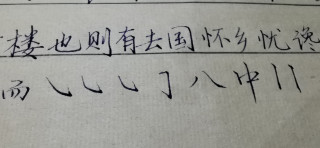 楼也则有去国怀乡忧谗
而㇏㇏㇏亅八中丨丨